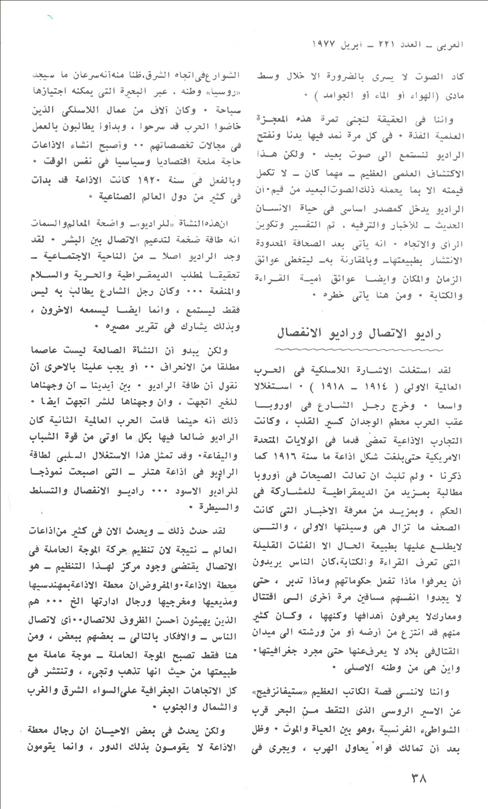 العربي ـ العدد ٢٢١ ـ ابريل ١٩٧٧
كاد الصوت لا يسرى بالضرورة الا خلال وسط
مادى (الهواء أو الماء أو الجوامد) ٠
واننا في الحقيقة لنجنى ثمرة هذه المعجزة
العلمية الفذة ٠ في كل مرة نمد فيها يدنا ونفتح
الراديو لنستمع الى صوت بعيد ٠ ولكن هذا
الاكتشاف العلمى العظيم ـ مهما كان ـ لا تكمل
قيمته الا بما يحمله ذلك الصوت البعيد من قيم ٠ أن
الراديو يدخل كمصدر اساسى في حياة الانسان
الحديث ـ للأخبار والترفيه ، ثم التفسير وتكوين
الرأى والاتجاه ٠ انه يأتى بعد الصحافة المحدودة
الانتشار بطبيعتها ـ وبالمقارنة به ـ ليتغطى عوائق
الزمان والمكان وايضا عوائق أمية القراءة
والكتابة ٠ ومن هنا يأتى خطره ٠
راديو الاتصال وراديو الانفصال
لقد استغلت الاشارة اللاسلكية في الحرب
العالمية الاولى ( ١٩١٤ ـ ١٩١٨ ) ٠ استغلالا
واسعا ٠ وخرج رجل الشارع في اوروبا
عقب الحرب محطم الوجدان كسير القلب ، وكانت
التجارب الاذاعية تمضى قدما في الولايات المتحدة
الامريكية حتى بلغت شكل اذاعة ما سنة ١٩١٦ كما
ذكرنا ٠ ولم تلبث ان تعالت الصيحات في أوروبا
مطالبة بمزيد من الديمقراطية للمشاركة في
الحكم ، وبمزيد من معرفة الاخبار التى كانت
الصحف ما تزال هى وسيلتها الاولى ، والتى
لايطلع عليها بطبيعة الحال الا الفئات القليلة
التى تعرف القراءة والكتابة ، كان الناس يريدون
أن يعرفوا ماذا تفعل حكوماتهم وماذا تدبر ، حتى
لا يجدوا انفسهم مساقين مرة أخرى الى اقتتال
ومعارك لا يعرفون أهدافها وكنهها ، وكان كثير
منهم قد انتزع من أرضه أو من ورشته الى ميدان
القتال في بلاد لا يعرف عنها حتى مجرد جغرافيتها ٠
واين هى من وطنه الاصلى ٠
واننا لاننسى قصة الكاتب العظيم «ستيفانزفيج»
عن الاسير الروسى الذى التقط من البحر قرب
الشواطىء الفرنسية ، وهو بين الحياة والموت ٠ وظل
بعد أن تمالك قواه يحاول الهرب ، ويجرى في
الشوارع في اتجاه الشرق ، ظنا منه أنه سرعان ما سيجد
«روسيا» وطنه ، عبر البحيرة التى يمكنه اجتيازها
سباحة ٠ وكان آلاف من عمال اللاسلكي الذين
خاضوا الحرب قد سرحوا ، وبدأوا يطالبون بالعمل
في مجالات تخصصاتهم ٠٠ وأصبح انشاء الاذاعات
حاجة ملحة اقتصاديا وسياسيا في نفس الوقت ٠
وبالفعل في سنة ١٩٢٠ كانت الاذاعة قد بدأت
في كثير من دول العالم الصناعية ٠
ان هذه النشأة «للراديو» ـ واضحة المعالم والسمات
انه طاقة ضخمة لتدعيم الاتصال بين البشر ٠ لقد
وجد الراديو اصلا ـ من الناحية الاجتماعية ـ
تحقيقا لمطلب الديمقراطية والحرية والسلام
والمنفعة ٠٠٠ وكان رجل الشارع يطالب به ليس
فقط ليستمع ، وانما ايضا ليسمعه الاخرون ،
وبذلك يشارك في تقرير مصيره ٠
ولكن يبدو أن النشأة الصالحة ليست عاصما
مطلقا من الانحراف ٠٠ أو يجب علينا بالاحرى أن
نقول أن طاقة الراديو ٠ بين أيدينا ـ ان وجهناها
للخير اتجهت ، وان وجهناها للشر اتجهت ايضا ٠
ذلك أنه حينما قامت الحرب العالمية الثانية كان
الراديو ضالعا فيها بكل ما اوتى من قوة الشباب
واليفاعة ٠ وقد تمثل هذا الاستغلال السلبى لطاقة
الراديو في اذاعة هتلر ـ التى اصبحت نموذجا
للراديو الاسود ٠٠٠ راديو الانفصال والتسلط
والسيطرة ٠
لقد حدث ذلك ـ ويحدث الان في كثير من اذاعات
العالم ـ نتيجة لان تنظيم حركة الموجة الحاملة في
الاتصال يقتضى وجود مركز لهذا التنظيم ـ هو
محطة الاذاعة ٠ والمفروض ان محطة الاذاعة بمهندسيها
ومذيعيها ومخرجيها ورجال ادارتها الخ ٠٠٠ هم
الذين يهيئون أحسن الظروف للاتصال ٠٠ أى لاتصال
الناس ـ والافكار بالتالى ـ بعضهم ببعض ، ومن
هنا فقط تصبح الموجة الحاملة ـ موجة عاملة مع
طبيعتها من حيث انها تذهب وتجىء ، وتنتشر في
كل الاتجاهات الجغرافية على السواء الشرق والغرب
والشمال والجنوب ٠
ولكن يحدث في بعض الاحيان ان رجال محطة
الاذاعة لا يقومون بذلك الدور ، وانما يقومون
٣٨